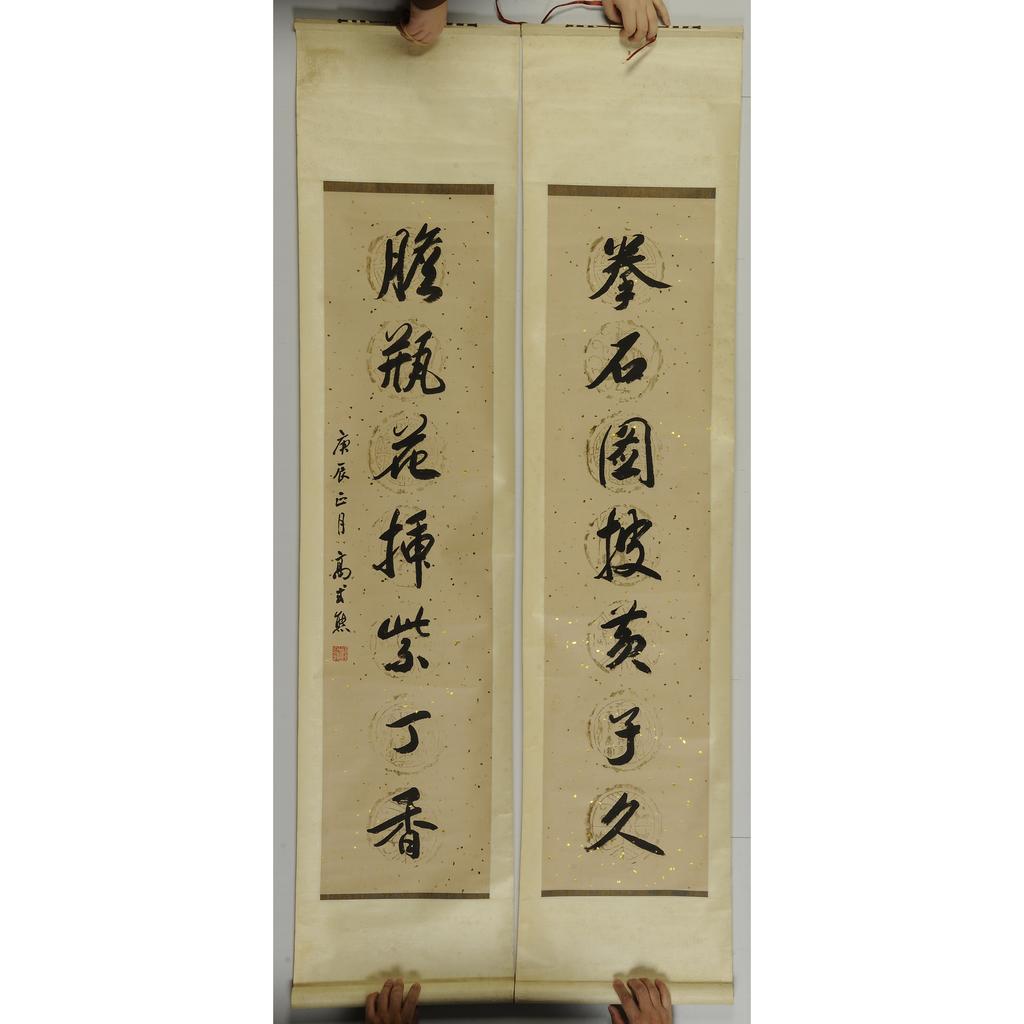 拳石圖披黃子久
膽瓶花插紫丁香
庚辰正月 高式熊